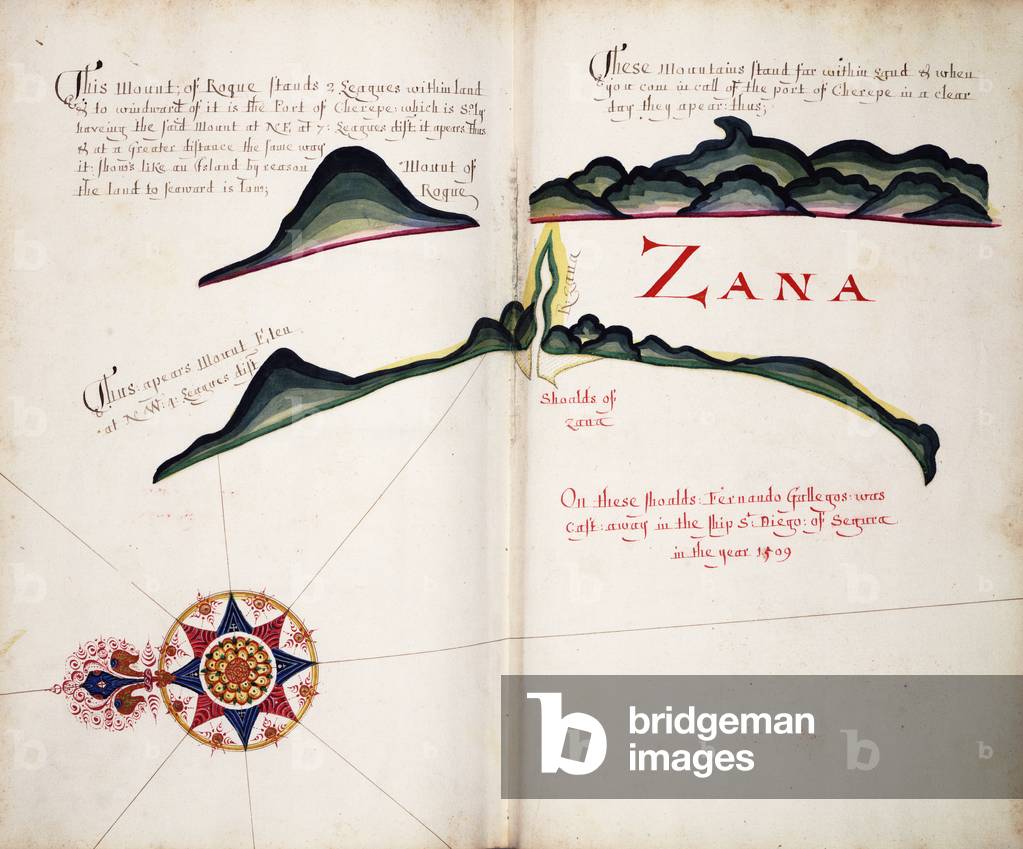 This Mount; of Roque stands 2 Leagues within land
& to windward of it is the Port of Cherepe: which is So:ly
haveing the said Mount at NE at 7: Leagues dist: it apears thus
& at a Greater distance the same way
it: show's like an Island by reason
the land to seaward is low;
Mount of
Roque
These Mountains stand far within Land & when
you com in call of the port of Cherepe in a clear
day they apear: thus;
ZANA
R: zana
Thus: apears Mount Eten
at N W: 4: Leagues dist
Shoalds of
zana
On these shoalds: Fernando Gallegos: was
Cast: away in the ship St: Diego: of Segura
in the year 1509
bridgeman
images